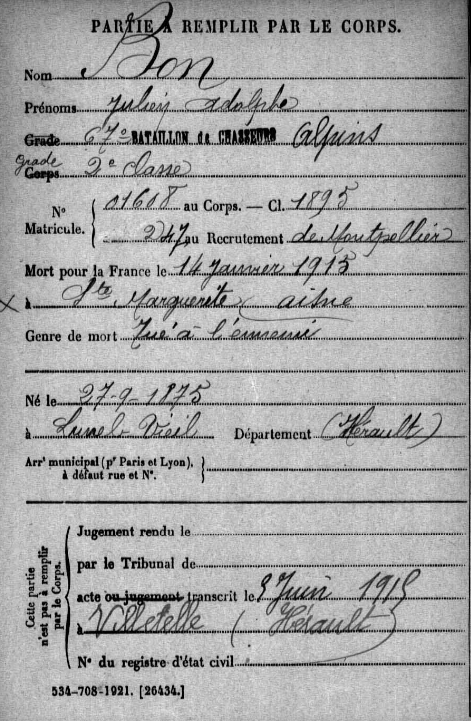 PARTIE À REMPLIR PAR LE CORPS.
Nom Bon
Prénoms Julien Adolphe
Grade 67e BATAILLON de CHASSEURS Alpins
Grade
Corps 2e classe
No Matricule. { 01608 au Corps. — Cl. 1895
247 au Recrutement de Montpellier
Mort pour la France le 14 Janvier 1915
à Ste Marguerite aisne
Genre de mort Tué à l'ennemi
Né le 27-9-1875
à Lunel-Vieil Département (Hérault)
Arrt municipal (pr Paris et Lyon), }
à défaut rue et No.
Cette partie n'est pas à remplir par le Corps.
Jugement rendu le
par le Tribunal de
acte ou jugement transcrit le 8 Juin 1915
à Villetelle (Hérault)
No du registre d'état civil
534-708-1921. [26434.]